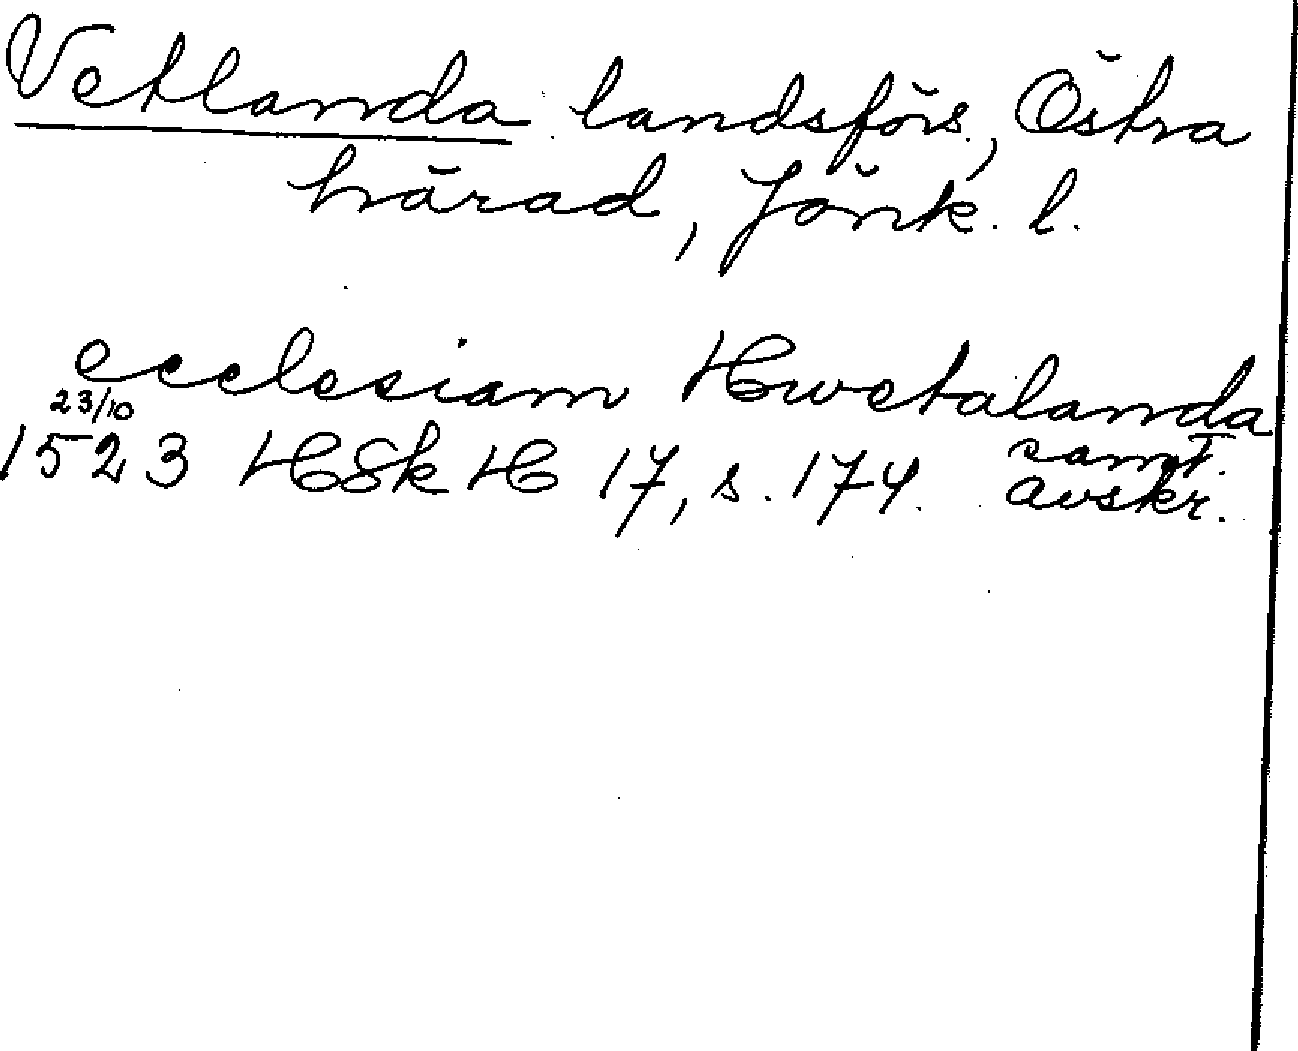 Vetlanda landsförs., Östra
härad, Jönk. l.
ecclesiam Hwetalanda
23/10
1523 HSkH 17, s. 174. samt.
avskr.